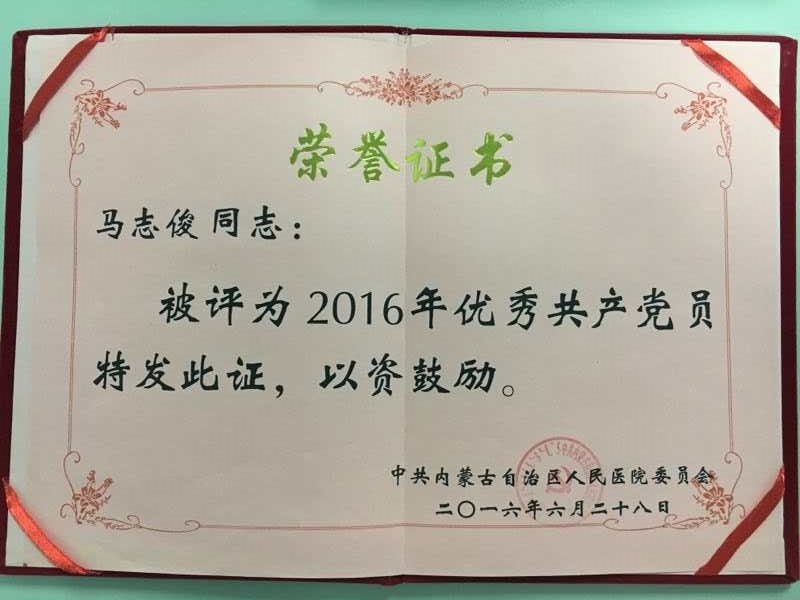 荣誉证书
马志俊同志：
被评为2016年优秀共产党员
特发此证，以资鼓励。
中共内蒙古自治区人民医院委员会
二〇一六年六月二十八日